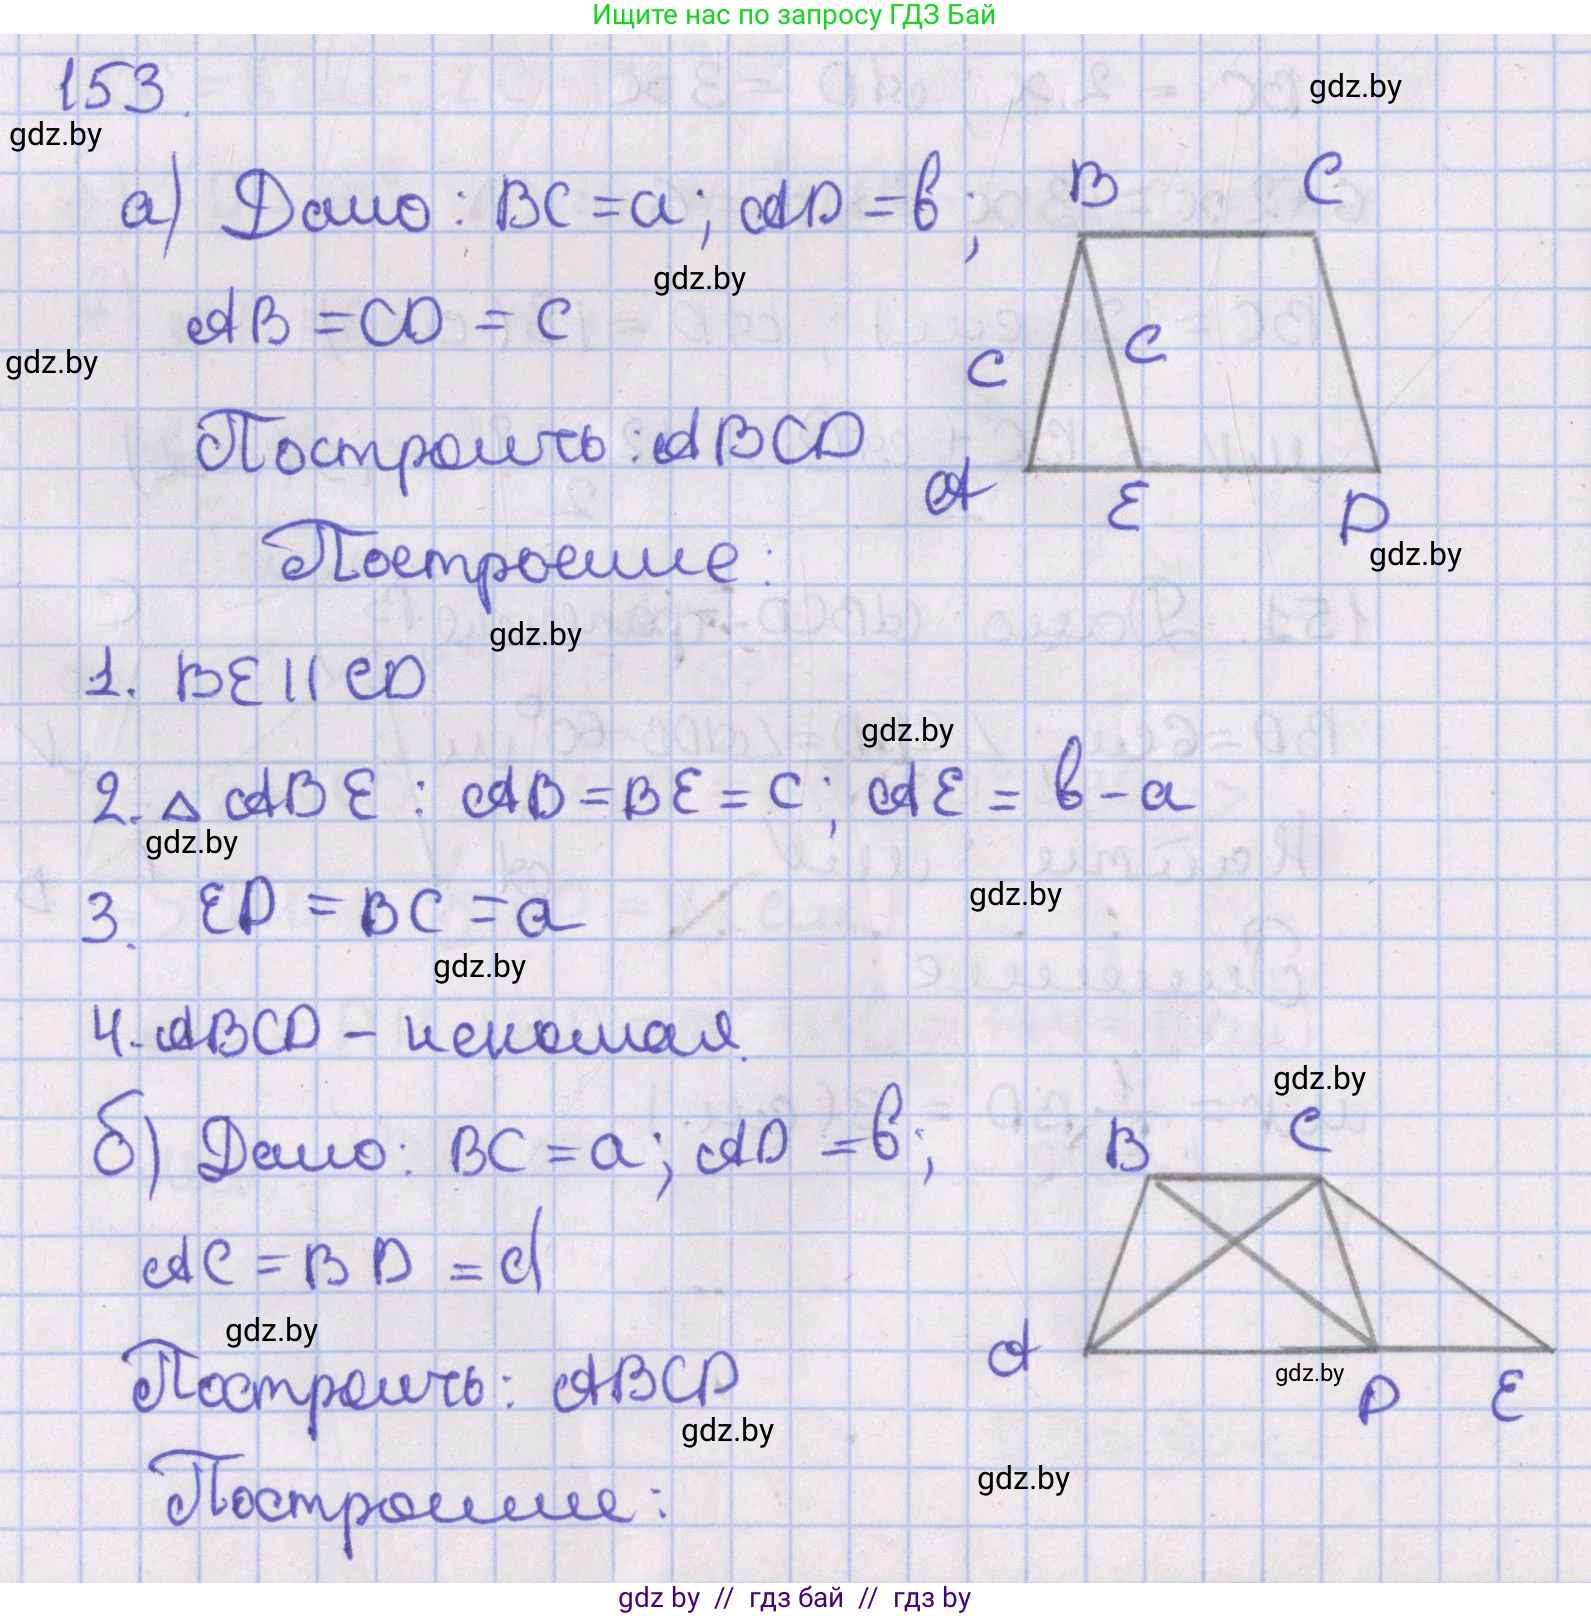 Ищите нас по запросу ГДЗ Бай
153.
gdz.by
gdz.by
а) Дано: BC = a; AD = b;
B C
gdz.by
AB = CD = c
gdz.by
c c
Построить: ABCD
A E D
gdz.by
Построение:
gdz.by
1. BE || CD
gdz.by
2. △ ABE : AB = BE = c; AE = b - a
gdz.by
gdz.by
3. ED = BC = a
gdz.by
4. ABCD - искомая.
gdz.by
б) Дано: BC = a; AD = b;
B C
AC = BD = d
gdz.by
A D E
gdz.by
Построить: ABCD
gdz.by
gdz.by
Построение:
gdz by // гдз бай // гдз by